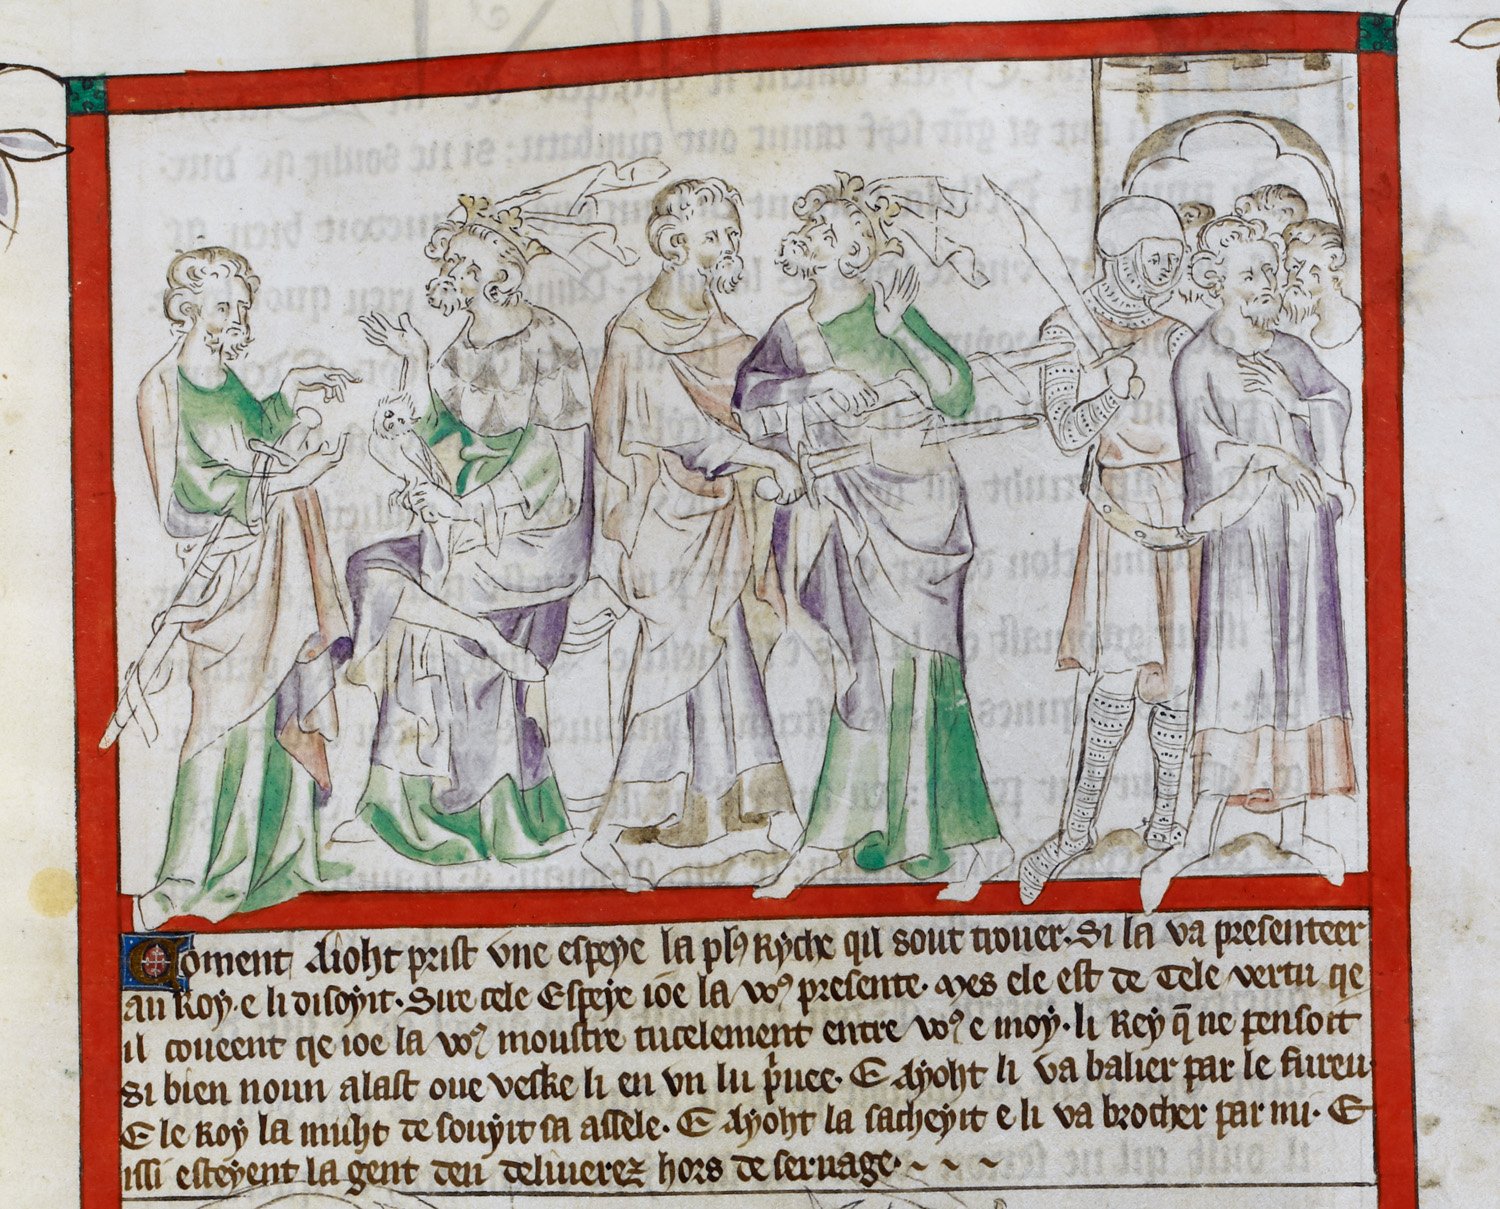 Coment Aioht prist vne espeye la plꝰ Ryche qil sout trouer. Si la va presenteer
au Roy. e li disoyit. Sire cele Espeye ioe la voꝰ presente. Mes ele est de Tele vertu qe
il coueent qe ioe la voꝰ moustre tucelement entre voꝰ e moy. li Rey q̄ ne pensoit
si bien noun alast oue veske li en vn lu p̓uee. E Ayoht li va balier par le fureu
E le Roy la muht de souyit sa assele. E Ayoht la sacheyit e li va brocher par mi. E
issi esteyent la gent deu deliuerez hors de seruage.